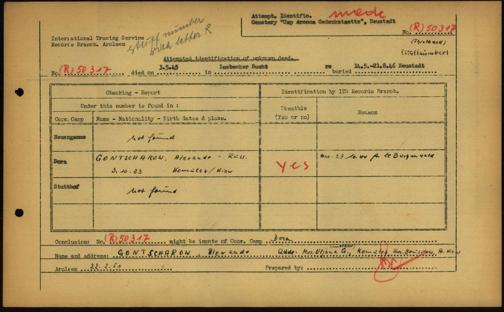 Attempt. Identific. made
Cemetery "Cap Arcona Gedenkstaette", Neustadt
International Tracing Service
Records Branch, Arolsen
Stoff number
with letter R
No. (R) 50317
(Stoffnumber)
Attempted identification of unknown dead.
No. (R) 50317 died on 3.5.45 in Luebecker Bucht re buried 14.5.-21.8.46 Neustadt
Checking - Report
Identification by ITS Records Branch.
Under this number is found in :
Conc. Camp
Name - Nationality - Birth dates & place.
Possible
(Yes or no)
Reason
Neuengamme
not found
Dora
GONTSCHAROW, - Russ.
3.10.23
Yes
Stutthof
not found
Conclusion: No. (R) 50317 might be inmate of Conc. Camp Dora
Name and address: GONTSCHAROW
Arolsen
Prepared by: